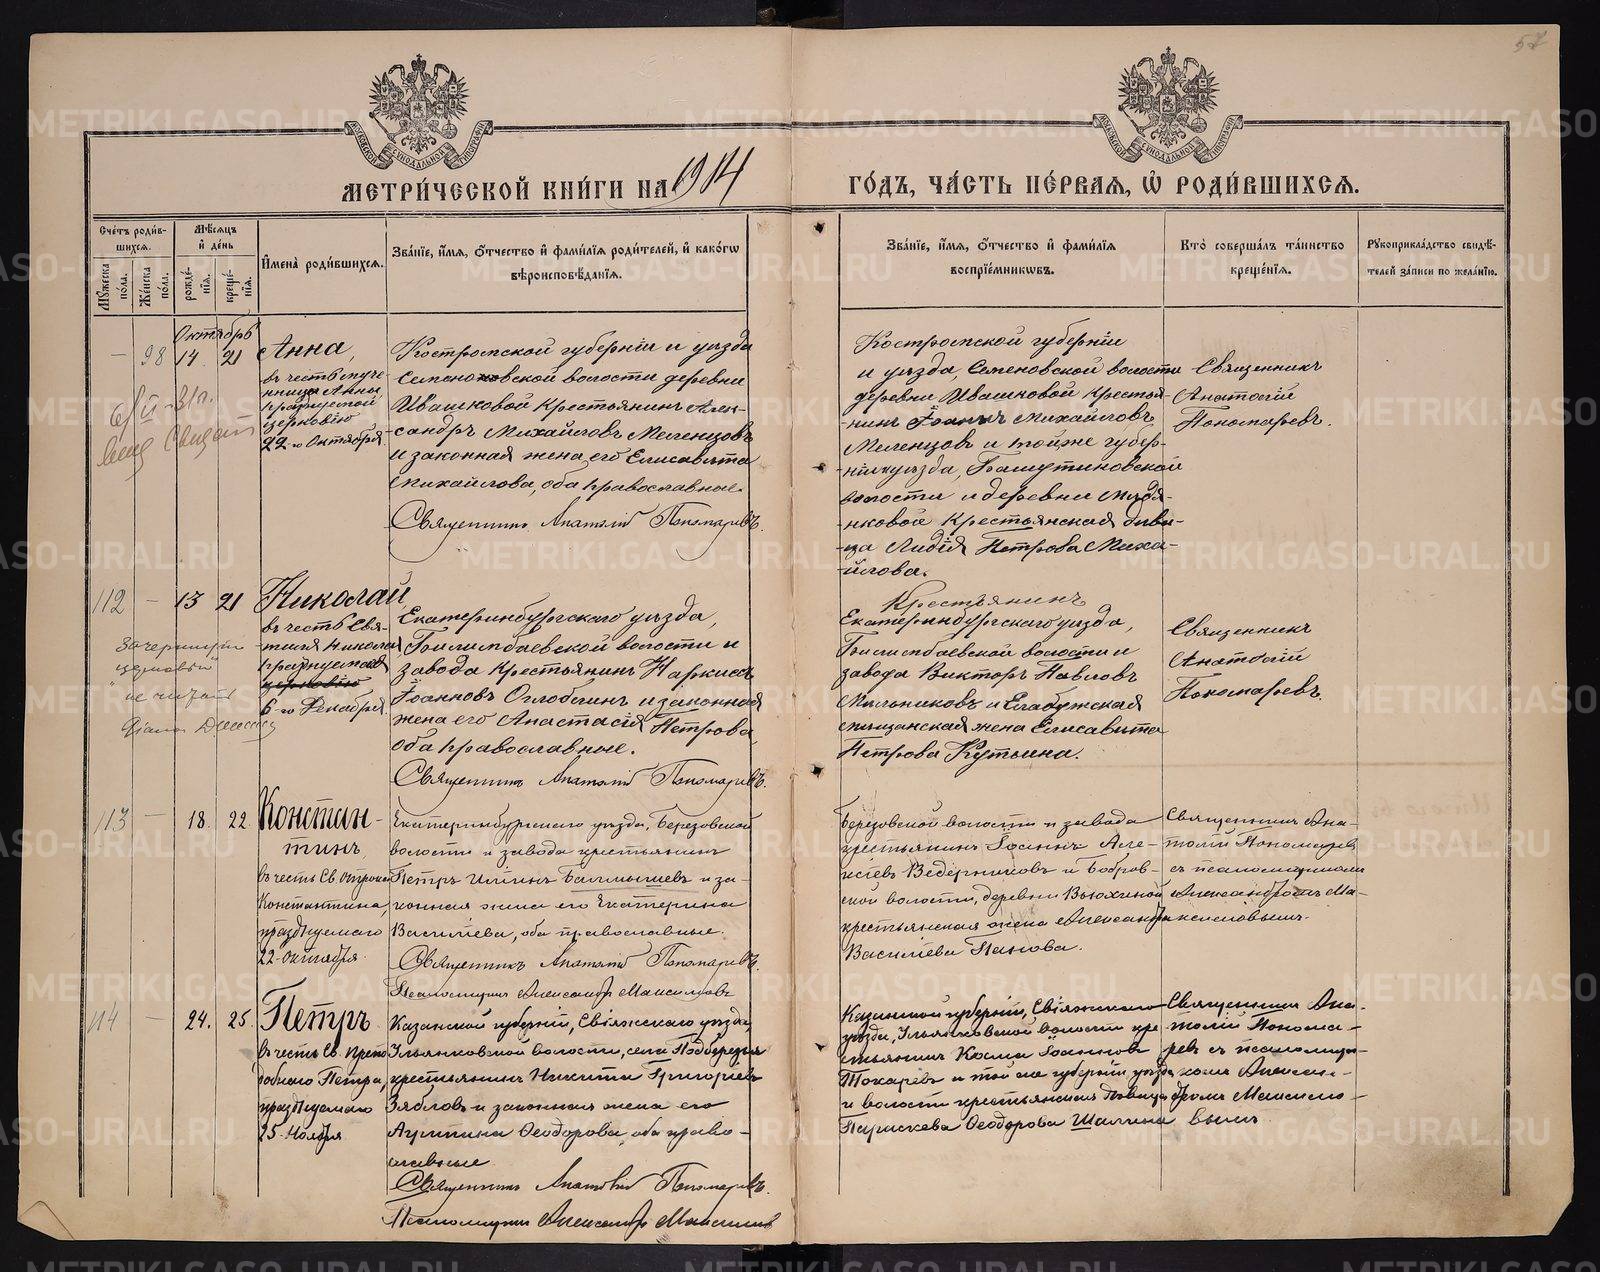 57
МОСКОВСКОЙ СѴНОДАЛЬНОЙ ТИПОГРАФІИ
МОСКОВСКОЙ СѴНОДАЛЬНОЙ ТИПОГРАФІИ
МЕТРИ́ЧЕСКОЙ КНИ́ГИ НА 1914
ГО́ДЪ, ЧА́СТЬ ПЕ́РВАЯ, Ѽ РОДИ́ВШИХСЯ.
Сче́тъ роди́в-
шихся.
Мѣ́сяцъ
и҆ де́нь
Мꙋ́жеска по́ла.
Же́нска по́ла.
рожде́-
нїя.
креще́-
нїя.
И҆мена̀ роди́вшихся.
Зва́нїе, и҆́мя, ѻ҆́тчество и҆ фами́лїя роди́телей, и҆ како́гѡ
вѣроисповѣ́данїя.
Зва́нїе, и҆́мя, ѻ҆́тчество и҆ фами́лїя
воспрїе́мникѡвъ.
Кто̀ соверша́лъ та́инство
креще́нїя.
Рꙋкоприкла́дство свидѣ́-
телей за́писи по жела́нїю.
Октябрь
— 98 14 21
Анна,
въ честь муче-
ницы Анны,
празднуемой
церковію
22-го Октября
Костромской губерніи и уѣзда
Семеновской волости деревни
Ивашковой крестьянинъ Алек-
сандръ Михайловъ Меленцовъ
и законная жена его Елисавета
Михайлова, оба православные.
Священникъ Анатолій Пономаревъ.
Костромской губерніи
и уѣзда, Семеновской волости
деревни Ивашковой крестья-
нинъ Іоаннъ Михайловъ
Меленцовъ и той же губер-
ніи и уѣзда, Башутиновской
волости и деревни
крестьянская дѣви-
ца Лидія Петрова Миха-
йлова.
Священникъ
Анатолій
Пономаревъ.
112 — 13 21
Николай,
въ честь Свя-
тителя Николая
празднуемаго
церковію
6-го Декабря
Зачеркнутое
"церковію"
не читать
Екатеринбургскаго уѣзда,
Билимбаевской волости и
завода крестьянинъ Наркисъ
Іоанновъ Оглоблинъ и законная
жена его Анастасія Петрова,
оба православные.
Священникъ Анатолій Пономаревъ.
Крестьянинъ
Екатеринбургскаго уѣзда,
Билимбаевской волости и
завода Викторъ Павловъ
Мельниковъ и Елабужская
мѣщанская жена Елисавета
Петрова Кутьина.
Священникъ
Анатолій
Пономаревъ.
113 — 18. 22.
Констан-
тинъ,
въ честь Св. Отрока
Константина,
празднуемаго
22-октября.
Екатеринбургскаго уѣзда, Березовской
волости и завода крестьянинъ
Петръ Ильинъ Балмышевъ и за-
конная жена его Екатерина
Василіева, оба православные.
Священникъ Анатолій Пономаревъ.
Псаломщикъ Александръ Максимовъ
Березовской волости и завода
крестьянинъ Іоаннъ Але-
ксіевъ Ведерниковъ и Бобров-
ской волости, деревни Вьюхиной
крестьянская жена Александра
Василіева Панова.
Священникъ Ана-
толій Пономаревъ
съ псаломщикомъ
Александромъ Ма-
ксимовымъ.
114 — 24. 25.
Петръ
въ честь Св. Препо-
добнаго Петра,
празднуемаго
25-Ноября
Казанской губерніи, Свіяжскаго уѣзда,
Ильинковской волости, села Подберезья
крестьянинъ Никита Григоріевъ
Зябловъ и законная жена его
Агрипина Ѳеодорова, оба право-
славные
Священникъ Анатолій Пономаревъ.
Псаломщикъ Александръ Максимовъ
Казанской губерніи, Свіяжскаго
уѣзда, Ильинковской волости кре-
стьянинъ Косма Іоанновъ
Токаревъ и той же губерніи уѣзда
и волости крестьянская дѣвица
Параскева Ѳеодорова Шалина
Священникъ Ана-
толій Понома-
ревъ съ псаломщи-
комъ Алексан-
дромъ Максимо-
вымъ
METRIKI.GASO-URAL.RU